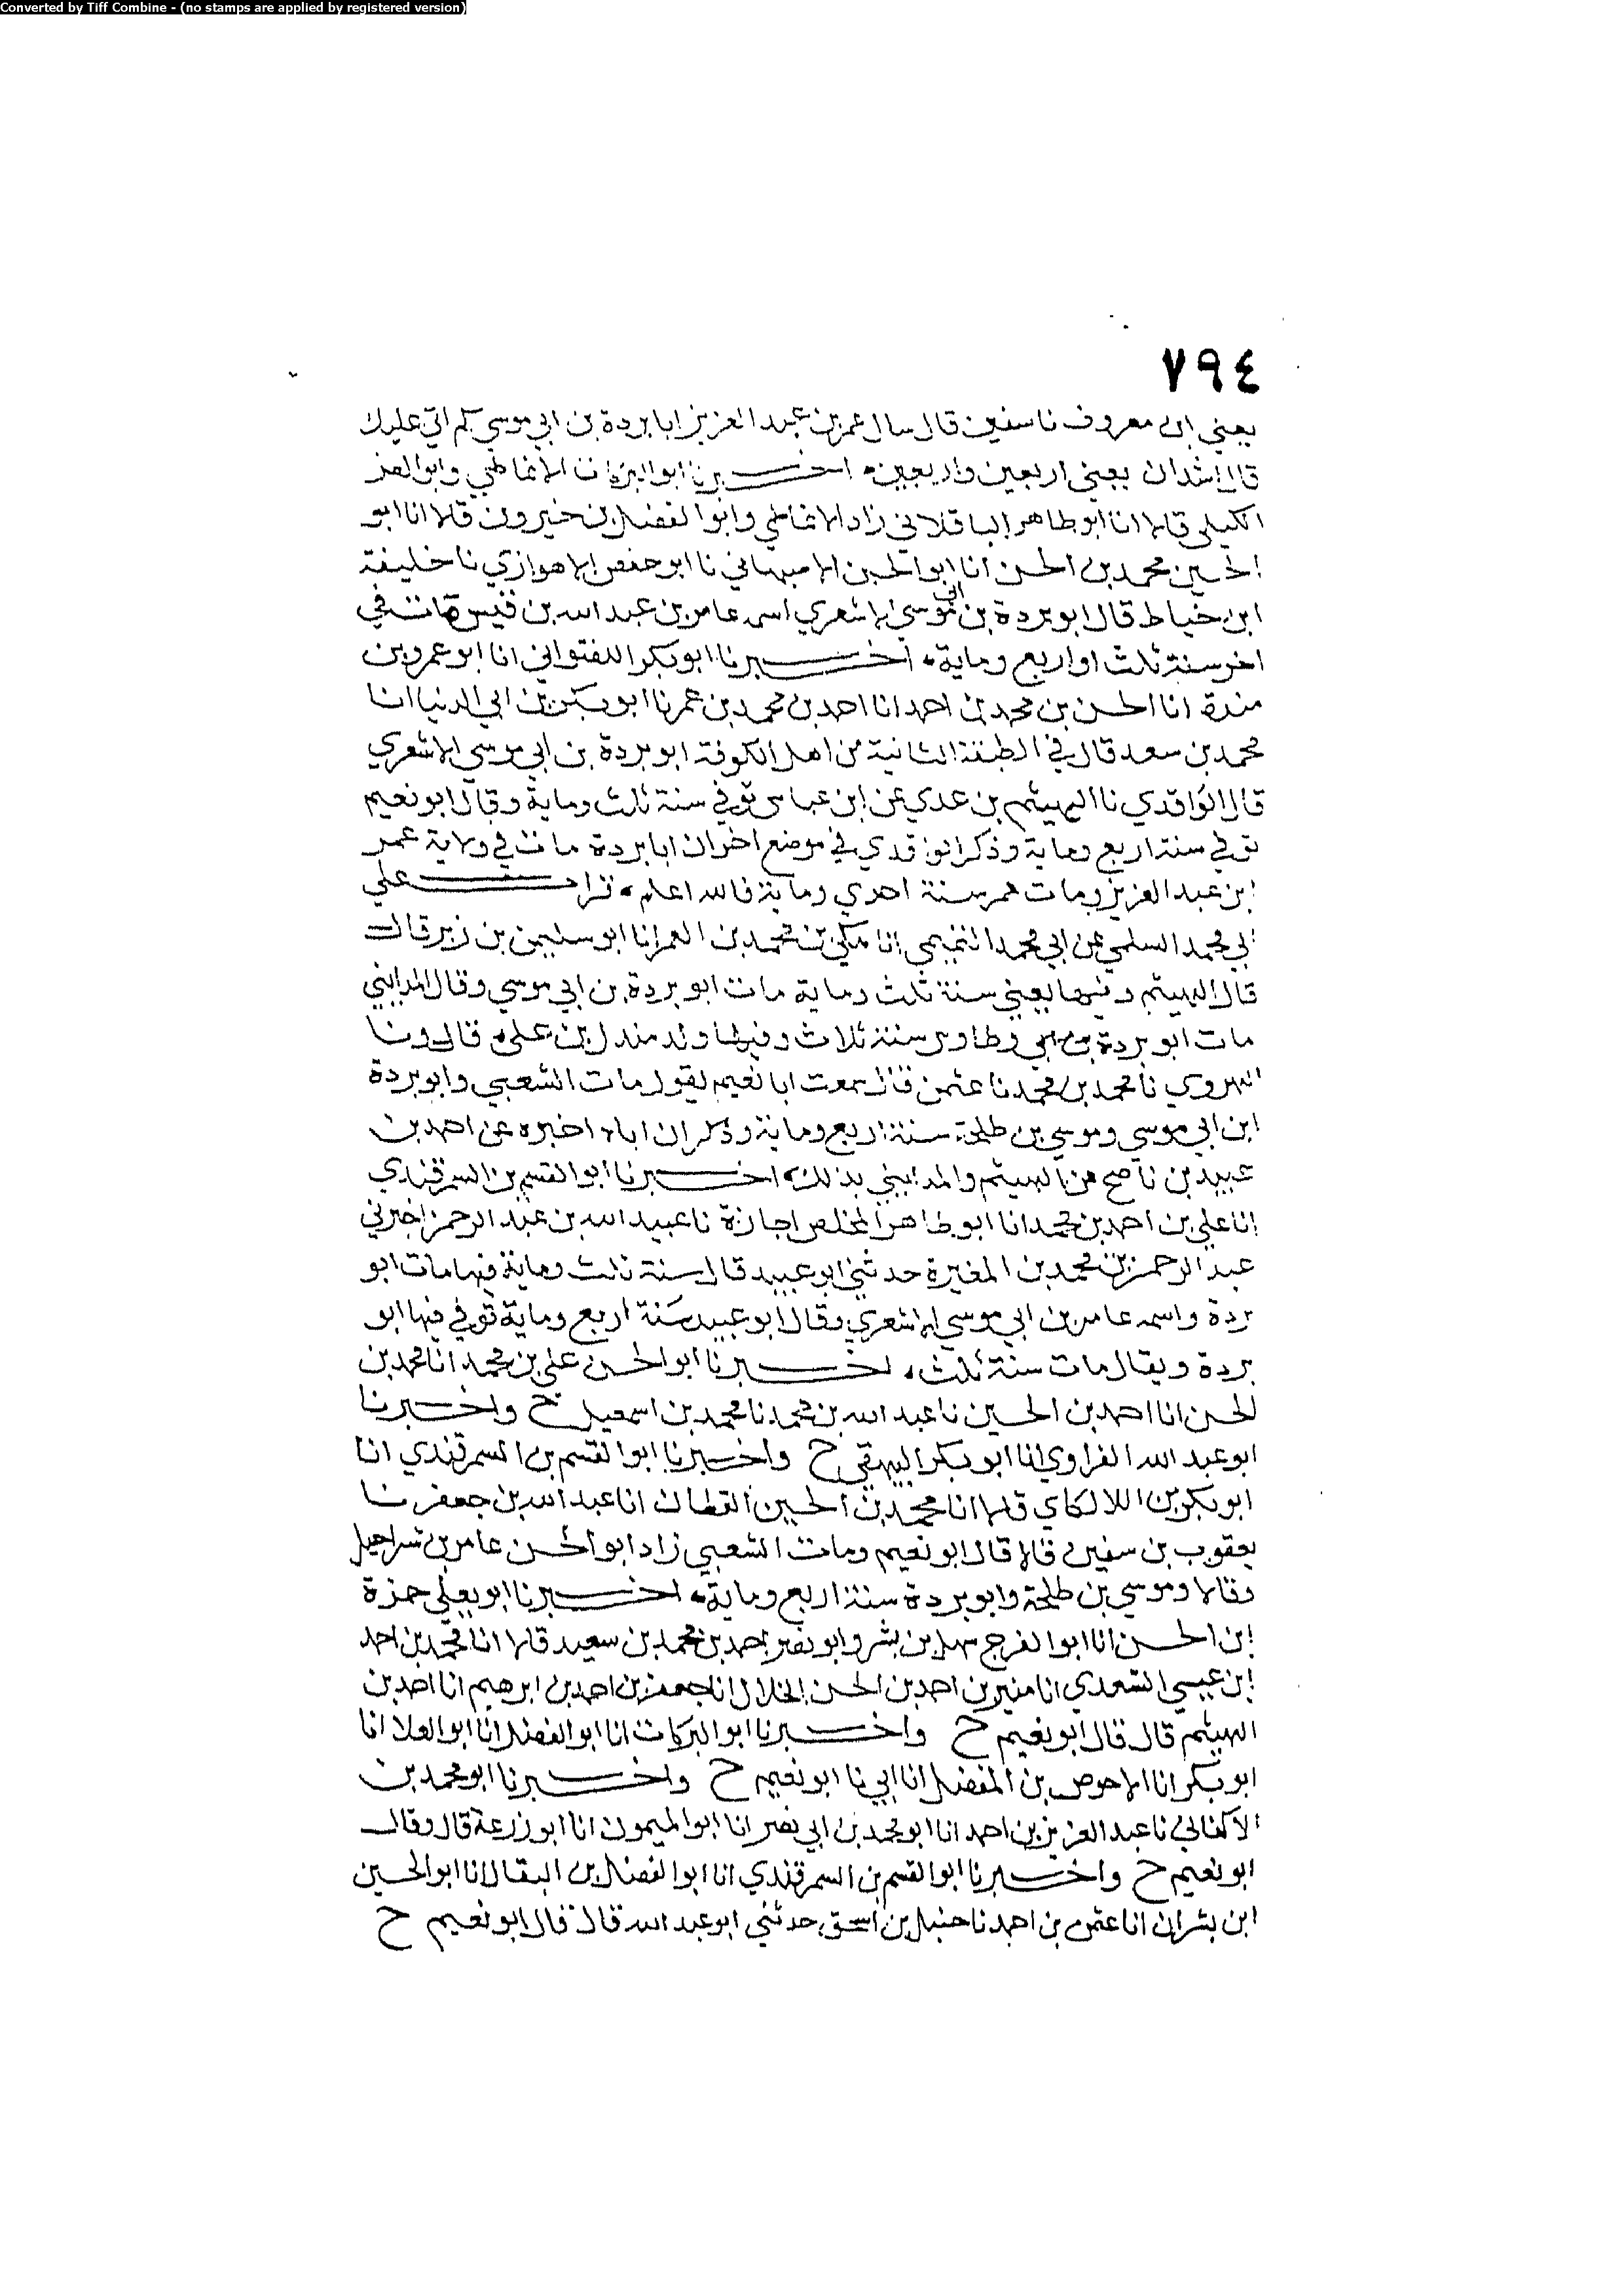 Converted by Tiff Combine - (no stamps are applied by registered version)
٧٩٤
يعني ابن معروف نا سفين قال سال عمر بن عبد العزيز ابا بردة بن ابي موسي كم اتي عليك
قال اشدان يعني اربعين واربعين اخبرنا ابو البركات الانماطي وابو العز
الكيلي قالا انا ابو طاهر الباقلاني زاد الانماطي وابو الفضل بن خيرون قالا انا ابو
الحسين محمد بن الحسن انا ابو الحسين الاصبهاني نا ابو حفص الاهوازي نا خليفة
ابن خياط قال ابو بردة بن ابي موسي الاشعري اسمه عامر بن عبد الله بن قيس مات في
اخر سنة ثلث او اربع وماية اخبرنا ابو بكر اللفتواني انا ابو عمرو بن
مندة انا الحسن بن محمد بن احمد انا احمد بن محمد بن عمر نا ابو بكر بن ابي الدنيا انا
محمد بن سعد قال في الطبقة الثانية من اهل الكوفة ابو بردة بن ابي موسي الاشعري
قال الواقدي نا الهيثم بن عدي عن ابن عباس توفي سنة ثلث وماية وقال ابو نعيم
توفي سنة اربع وماية وذكر الواقدي في موضع اخر ان ابا بردة مات في ولاية عمر
ابن عبد العزيز ومات عمر سنة احدي وماية فالله اعلم قرات علي
ابي محمد السلمي عن ابي محمد التميمي انا مكي بن محمد بن الغمر انا ابو سليمن بن زبر قال
قال الهيثم وفيها يعني سنة ثلث وماية مات ابو بردة بن ابي موسي وقال المدايني
مات ابو بردة بن ابي وطاوس سنة ثلاث وفيها ولد مندل بن علي قال ونا
الهروي نا محمد بن محمد نا عثمن قال سمعت ابا نعيم يقول مات الشعبي وابو بردة
ابن ابي موسي وموسي بن طلحة سنة اربع وماية وذكر ان اباه اخبره عن احمد بن
عبيد بن ناصح عن الهيثم والمدايني بذلك اخبرنا ابو القسم بن السمرقندي
انا علي بن احمد بن محمد انا ابو طاهر المخلص اجازة نا عبيد الله بن عبد الرحمن اخبرني
عبد الرحمن بن محمد بن المغيرة حدثني ابو عبيد قال سنة ثلث وماية فيها مات ابو
بردة واسمه عامر بن ابي موسي الاشعري وقال ابو عبيد سنة اربع وماية توفي فيها ابو
بردة ويقال مات سنة ثلث اخبرنا ابو الحسن علي بن محمد انا محمد بن
الحسن انا احمد بن الحسين نا عبد الله بن محمد نا محمد بن اسمعيل ح واخبرنا
ابو عبد الله الفراوي انا ابو بكر البيهقي ح واخبرنا ابو القسم بن السمرقندي انا
ابو بكر بن اللالكاي قالا انا محمد بن الحسين القطان انا عبد الله بن جعفر نا
يعقوب بن سفين قالا قال ابو نعيم ومات الشعبي زاد ابو الحسن عامر بن شراحيل
وقالا وموسي بن طلحة وابو بردة سنة اربع وماية اخبرنا ابو يعلي حمزة
ابن الحسن انا ابو الفرج سهل بن بشر وابو نصر احمد بن محمد بن سعيد قالا انا محمد بن احمد
ابن عيسي السعدي انا منير بن احمد بن الحسن الخلال انا جعفر بن احمد بن ابرهيم انا احمد بن
الهيثم قال قال ابو نعيم ح واخبرنا ابو البركات انا ابو الفضل انا ابو العلا انا
ابو بكر انا الاحوص بن المفضل انا ابي نا ابو نعيم ح واخبرنا ابو محمد بن
الاكفاني نا عبد العزيز بن احمد انا ابو محمد بن ابي نصر انا ابو الميمون انا ابو زرعة قال وقال
ابو نعيم ح واخبرنا ابو القسم بن السمرقندي انا ابو الفضل بن البقال انا ابو الحسين
ابن بشران انا عثمن بن احمد نا حنبل بن اسحق حدثني ابو عبد الله قال قال ابو نعيم ح